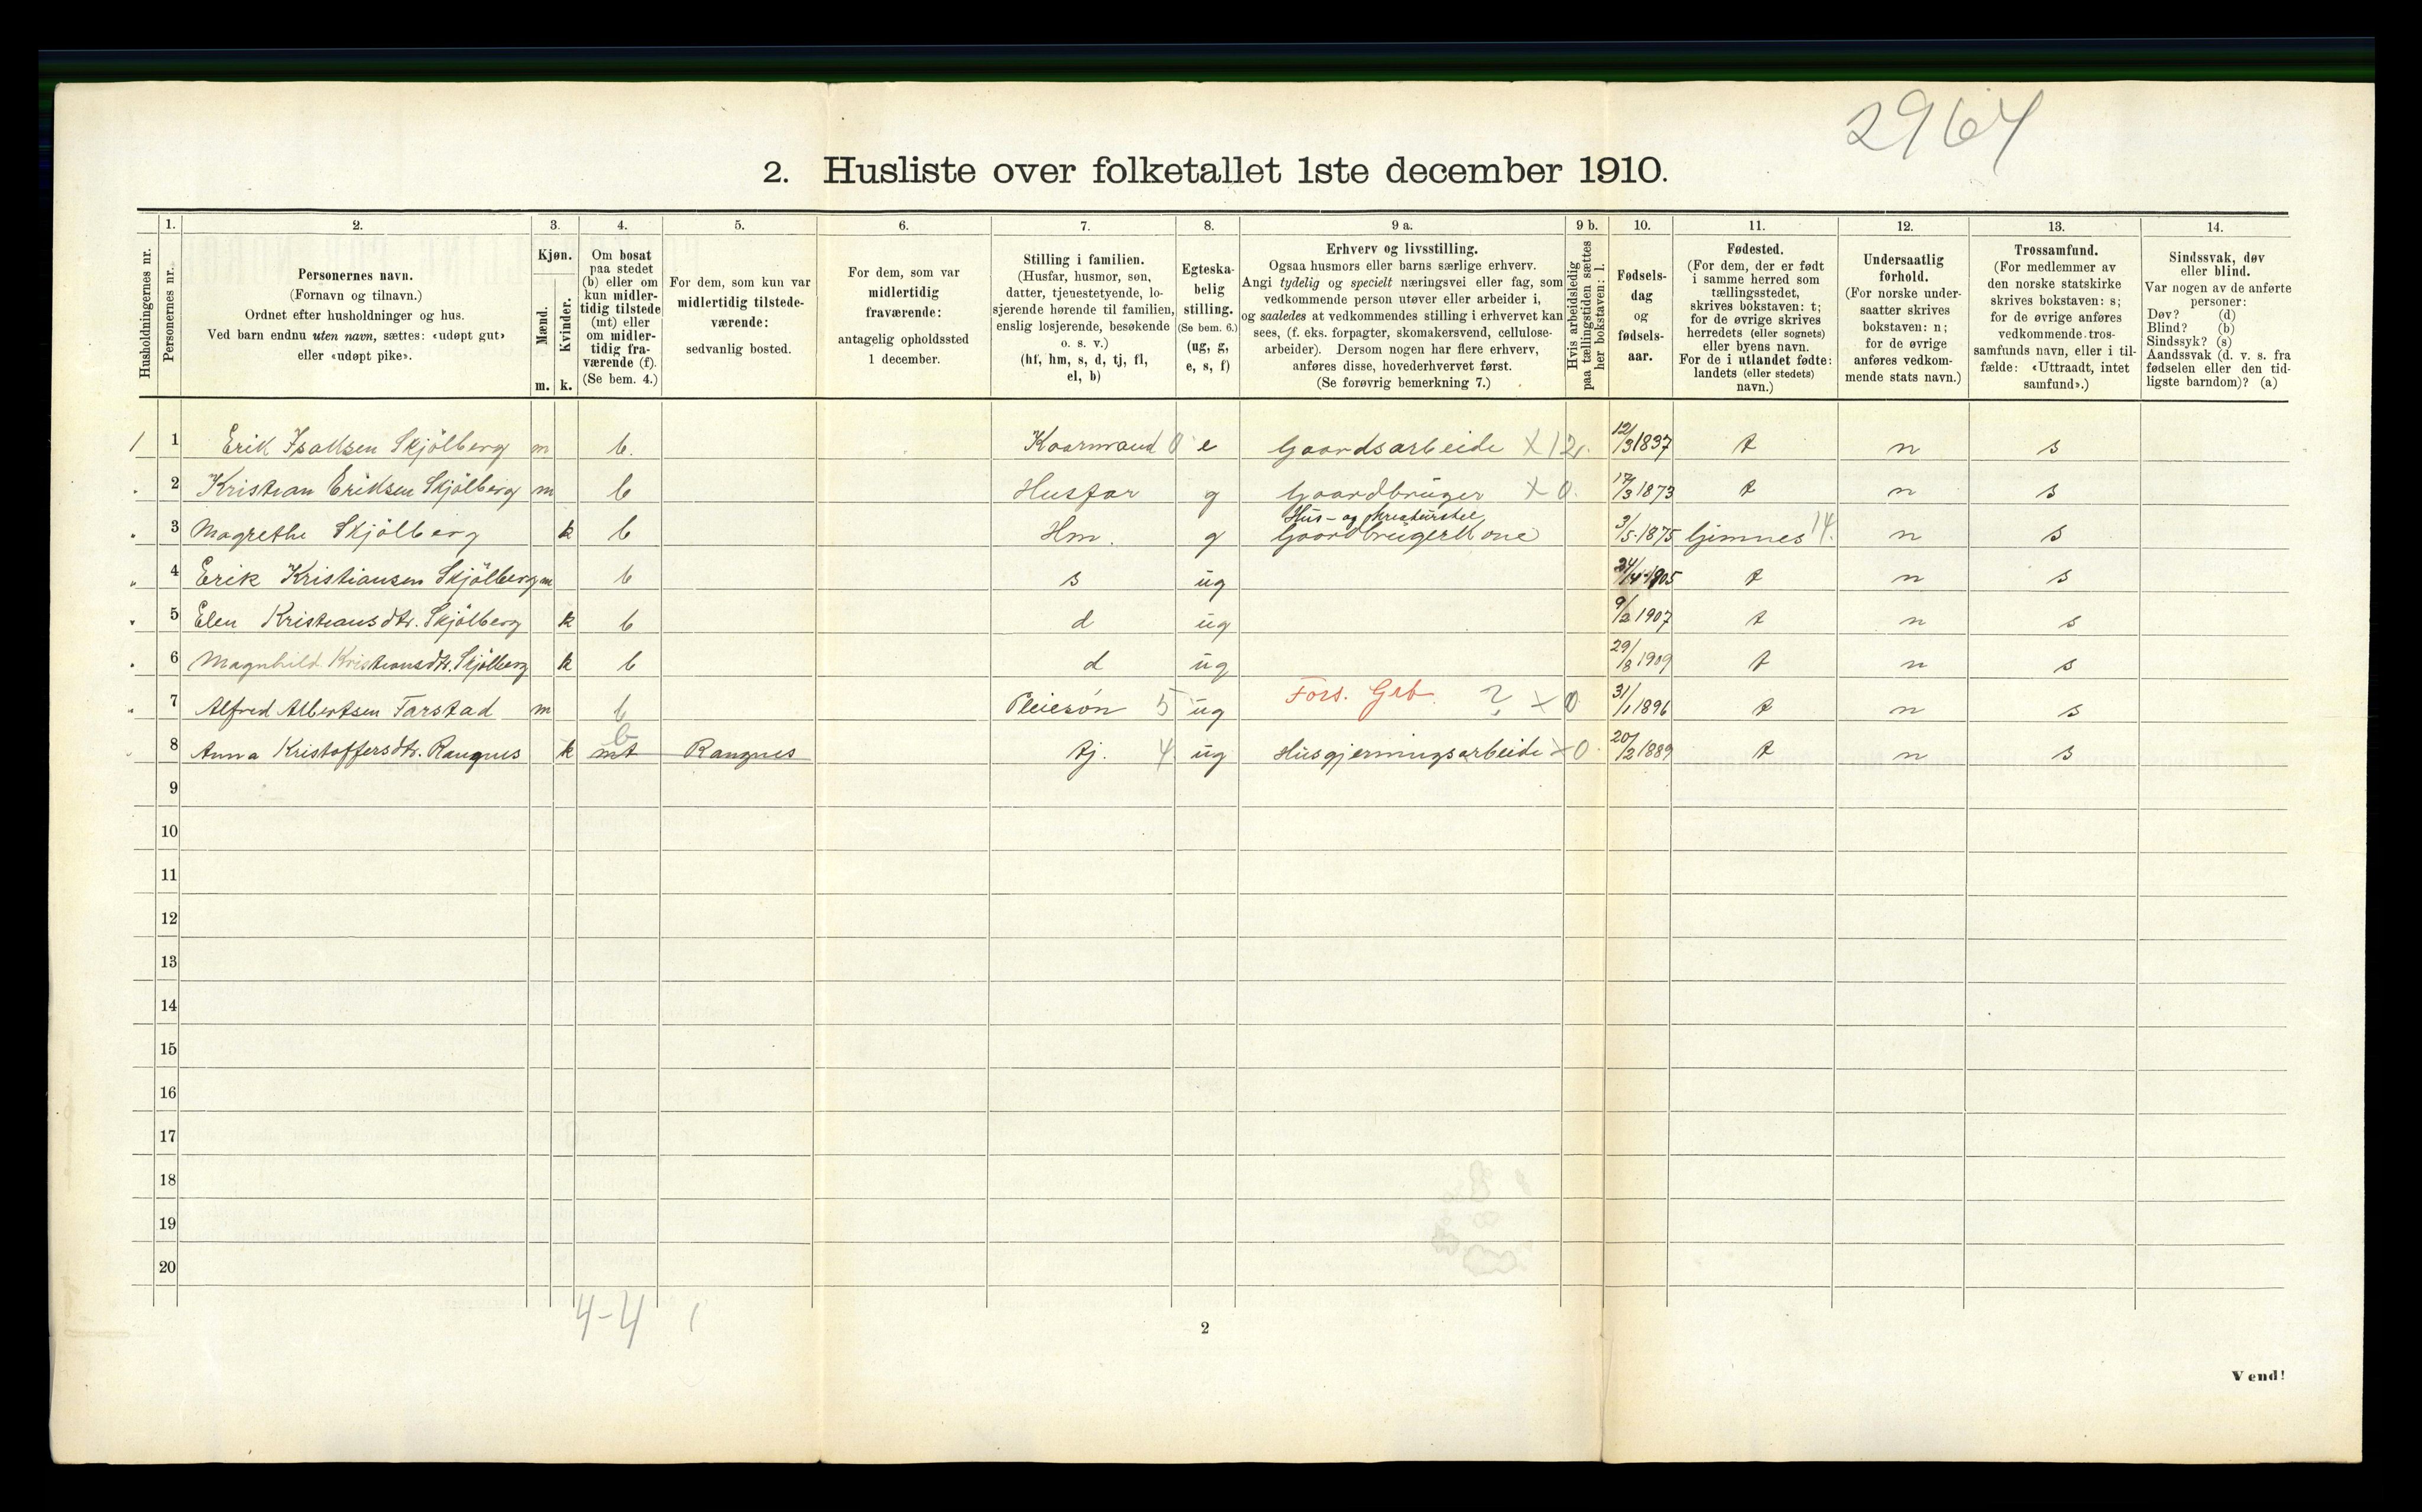 2964
2. Husliste over folketallet 1ste december 1910.
1. 2. 3. 4. 5. 6. 7. 8. 9 a. 9 b. 10. 11. 12. 13. 14.
Husholdningernes nr.
Personernes nr.
Personernes navn.
(Fornavn og tilnavn.)
Ordnet efter husholdninger og hus.
Ved barn endnu uten navn, sættes: «udøpt gut»
eller «udøpt pike».
Kjøn.
Mænd.
Kvinder.
m. k.
Om bosat
paa stedet
(b) eller om
kun midler-
tidig tilstede
(mt) eller
om midler-
tidig fra-
værende (f).
(Se bem. 4.)
For dem, som kun var
midlertidig tilstede-
værende:
sedvanlig bosted.
For dem, som var
midlertidig
fraværende:
antagelig opholdssted
1 december.
Stilling i familien.
(Husfar, husmor, søn,
datter, tjenestetyende, lo-
sjerende hørende til familien,
enslig losjerende, besøkende
o. s. v.)
(hf, hm, s, d, tj, fl,
el, b)
Egteska-
belig
stilling.
(Se bem. 6.)
(ug, g,
e, s, f)
Erhverv og livsstilling.
Ogsaa husmors eller barns særlige erhverv.
Angi tydelig og specielt næringsvei eller fag, som
vedkommende person utøver eller arbeider i,
og saaledes at vedkommendes stilling i erhvervet kan
sees, (f. eks. forpagter, skomakersvend, cellulose-
arbeider). Dersom nogen har flere erhverv,
anføres disse, hovederhvervet først.
(Se forøvrig bemerkning 7.)
Hvis arbeidsledig
paa tællingstiden sættes
her bokstaven: l.
Fødsels-
dag
og
fødsels-
aar.
Fødested.
(For dem, der er født
i samme herred som
tællingsstedet,
skrives bokstaven: t;
for de øvrige skrives
herredets (eller sognets)
eller byens navn.
For de i utlandet fødte:
landets (eller stedets)
navn.)
Undersaatlig
forhold.
(For norske under-
saatter skrives
bokstaven: n;
for de øvrige
anføres vedkom-
mende stats navn.)
Trossamfund.
(For medlemmer av
den norske statskirke
skrives bokstaven: s;
for de øvrige anføres
vedkommende tros-
samfunds navn, eller i til-
fælde: «Uttraadt, intet
samfund».)
Sindssvak, døv
eller blind.
Var nogen av de anførte
personer:
Døv? (d)
Blind? (b)
Sindssyk? (s)
Aandssvak (d. v. s. fra
fødselen eller den tid-
ligste barndom)? (a)
1 1 Erik Isaksen Skjölberg m b. Kaarmand 0 e Gaardsarbeide X12. 12/3 1837 t n s
2 Kristian Eriksen Skjölberg m b Husfar g Gaardbruger X 0. 17/3 1873 t n s
Hus- og kreaturstel
3 Magrethe Skjölberg k b Hm. g Gaardbrugerkone 3/5 1875 Gjemnes 14. n s
4 Erik Kristiansen Skjölberg m b s ug 24/4 1905 t n s
5 Elen Kristiansdtr. Skjölberg k b d ug 9/2 1907 t n s
6 Magnhild Kristiansdtr. Skjölberg k b d ug 29/8 1909 t n s
7 Alfred Albertsen Farstad m b Pleiesön 5 ug Fors. Grb. ? X 0 31/1 1896 t n s
b
8 Anna Kristoffersdtr. Rangnes k mt Rangnes tj. 4 ug Husgjerningsarbeide X 0. 20/2 1889 t n s
9
10
11
12
13
14
15
16
17
18
19
20
4-4 1
2
Vend!